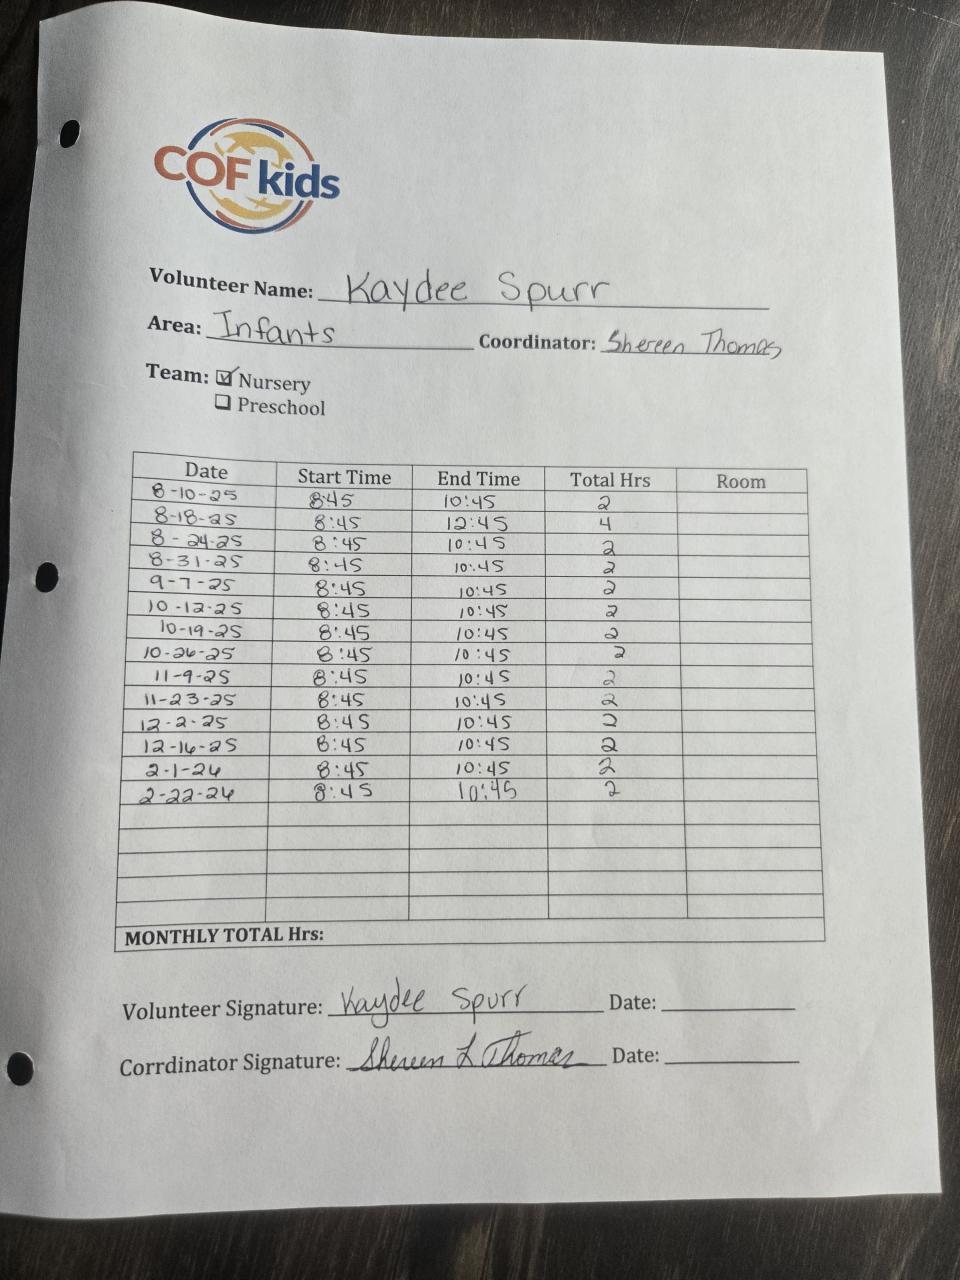 COF kids
Volunteer Name: Kaydee Spurr
Area: Infants Coordinator: Shereen Thomas
Team: ☑ Nursery
☐ Preschool
Date Start Time End Time Total Hrs Room
8-10-25 8:45 10:45 2
8-18-25 8:45 12:45 4
8-24-25 8:45 10:45 2
8-31-25 8:45 10:45 2
9-7-25 8:45 10:45 2
10-12-25 8:45 10:45 2
10-19-25 8:45 10:45 2
10-26-25 8:45 10:45 2
11-9-25 8:45 10:45 2
11-23-25 8:45 10:45 2
12-2-25 8:45 10:45 2
12-16-25 8:45 10:45 2
2-1-26 8:45 10:45 2
2-22-26 8:45 10:45 2
MONTHLY TOTAL Hrs:
Volunteer Signature: Kaydee Spurr Date:
Corrdinator Signature: Shereen L Thomas Date: